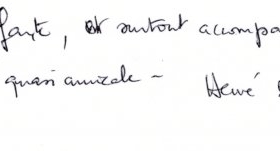 faute, et surtout accompa
quasi amicale - Hervé